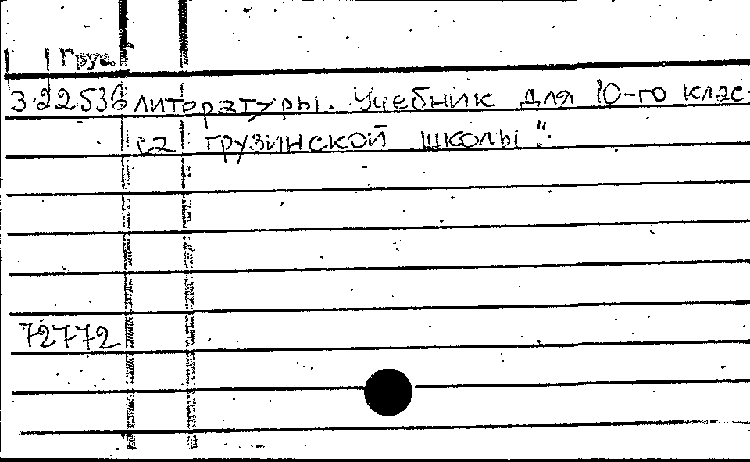 Груз.
322536 литературы. Учебник для 10-го клас-
са грузинской школы".
72772